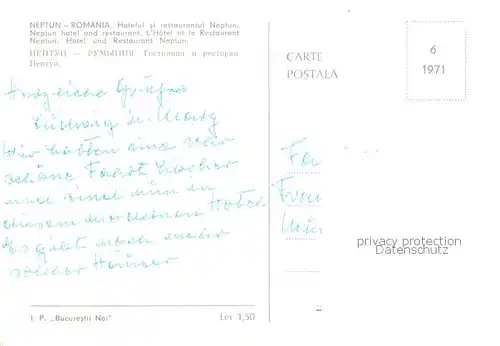 NEPTUN – ROMÂNIA. Hotelul şi restaurantul Neptun.
Neptun hotel and restaurant. L'Hôtel et le Restaurant
Neptun. Hotel und Restaurant Neptun.
НЕПТУН — РУМЫНИЯ. Гостиница и ресторан
Нептун.
Herzliche Grüsse
Ludwig u. Mary
Wir hatten eine sehr
schöne Fahrt hierher
und sind nun in
diesem modernen Hotel
Es gibt noch mehr
solcher Häuser
I. P. „Bucureştii Noi"
Lei 1,50
CARTE
POSTALĂ
6
1971
Fa
Frau
privacy protection
Datenschutz